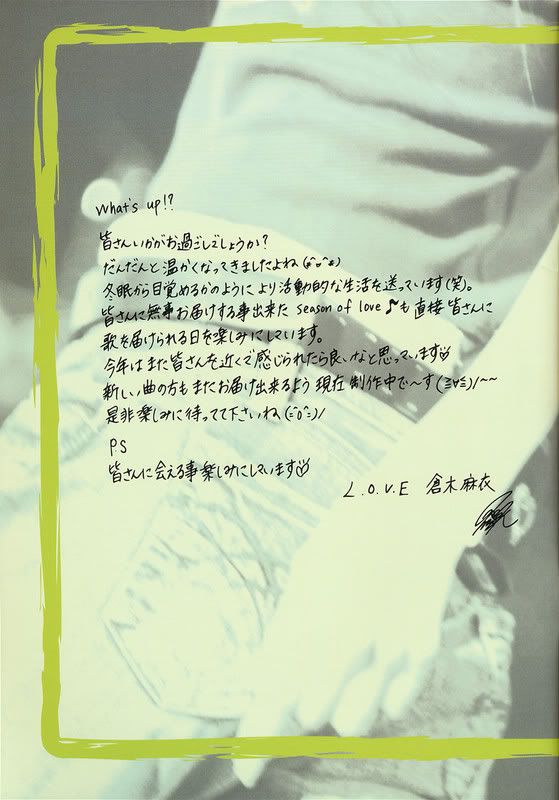 What's up!?
皆さんいかがお過ごしでしょうか?
だんだんと温かくなってきましたよね(*^_^*)
冬眠から目覚めるかのように より活動的な生活を送っています(笑)。
皆さんに無事お届けする事出来た season of love♪も直接皆さんに
歌を届けられる日を楽しみにしています。
今年はまた皆さんを近くで感じられたら良いなと思っています
新しい曲の方もまたお届け出来るよう現在制作中で〜す(≧∀≦)/〜〜
是非楽しみに待ってて下さいね(^o^)/
PS
皆さんに会える事楽しみにしています
L.O.V.E 倉木麻衣